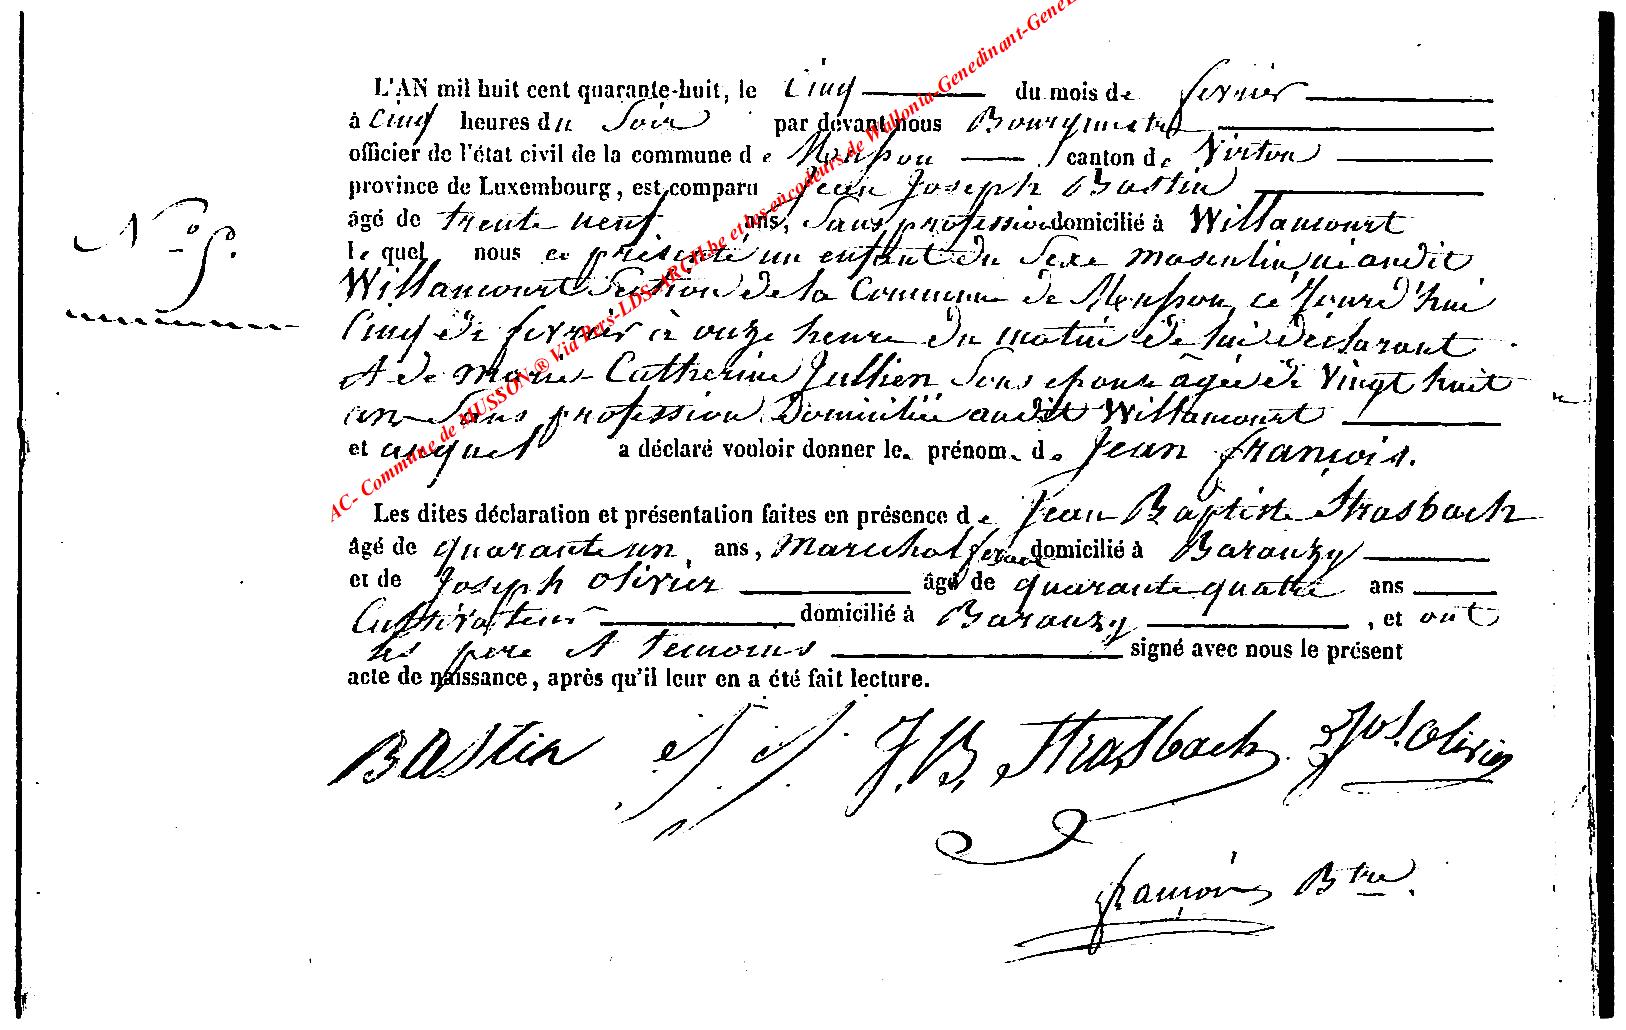 L'AN mil huit cent quarante-huit, le Cinq du mois de fevrier
à Cinq heures du Soir par devant nous Bourgmestre
officier de l'état civil de la commune de Musson canton de Virton
province de Luxembourg, est comparu Jean Joseph Bastin
âgé de trente neuf ans, Sans profession domicilié à Willancourt
le quel nous a présenté un enfant du Sexe masculin, né audit
Willancourt Section de la Commune de Musson, ce Jourd'hui
Cinq de fevrier à onze heure du matin de lui déclarant
et de Marie Catherine Jullien Sons epouse âgée de vingt huit
an Sans profession Domiciliée audit Willancourt
et auquel a déclaré vouloir donner le prénom de Jean françois.
N.° 5.
Les dites déclaration et présentation faites en présence de Jean Baptiste Strasbach
âgé de quarante un ans, Marechal ferant domicilié à Baranzy
et de Joseph Olivier âgé de quarante quatre ans
Cultivateur domicilié à Baranzy, et ont
les pere et temoins signé avec nous le présent
acte de naissance, après qu'il leur en a été fait lecture.
BAStin J. B. Strasbach Jos. Olivier
françois Btre.
AC- Commune de MUSSON ® Via Pers-LDS-ARCH.be et les encodeurs de Wallonia-Genedinant-GeneL